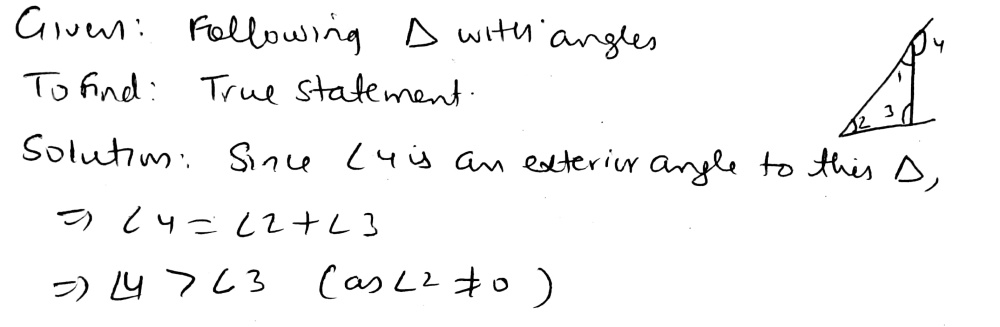 Given: Following Δ with angles
To find: True statement.
Solution: Since ∠4 is an exterior angle to this Δ,
⇒ ∠4 = ∠2 + ∠3
⇒ ∠4 > ∠3 (as ∠2 ≠ 0)
4
1
2 3